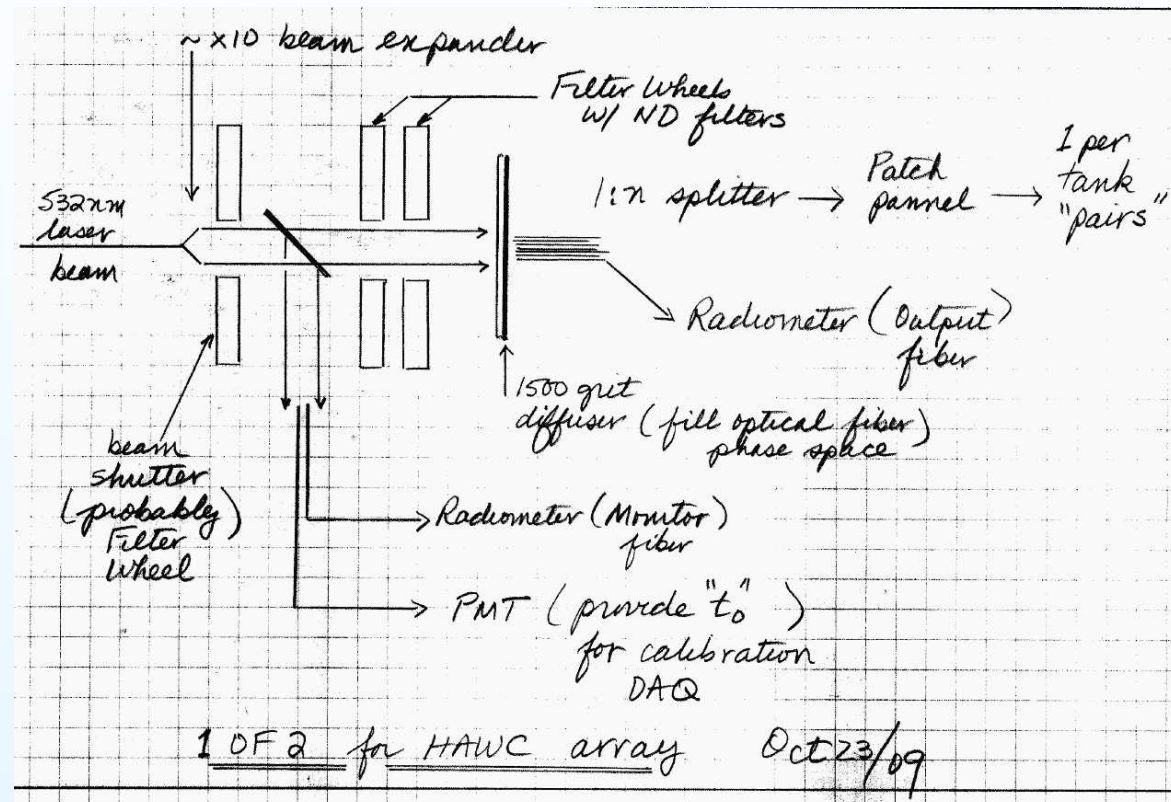 ~ x10 beam expander
Filter Wheels
w/ ND filters
1:n splitter → Patch
pannel → 1 per
tank
"pairs"
532nm
laser
beam
Radiometer (Output)
fiber
1500 grit
diffuser (fill optical fiber)
phase space
beam
shutter
(probably)
Filter
Wheel
Radiometer (Monitor)
fiber
PMT (provide "t₀")
for calibration
DAQ
1 OF 2 for HAWC array Oct 23/09